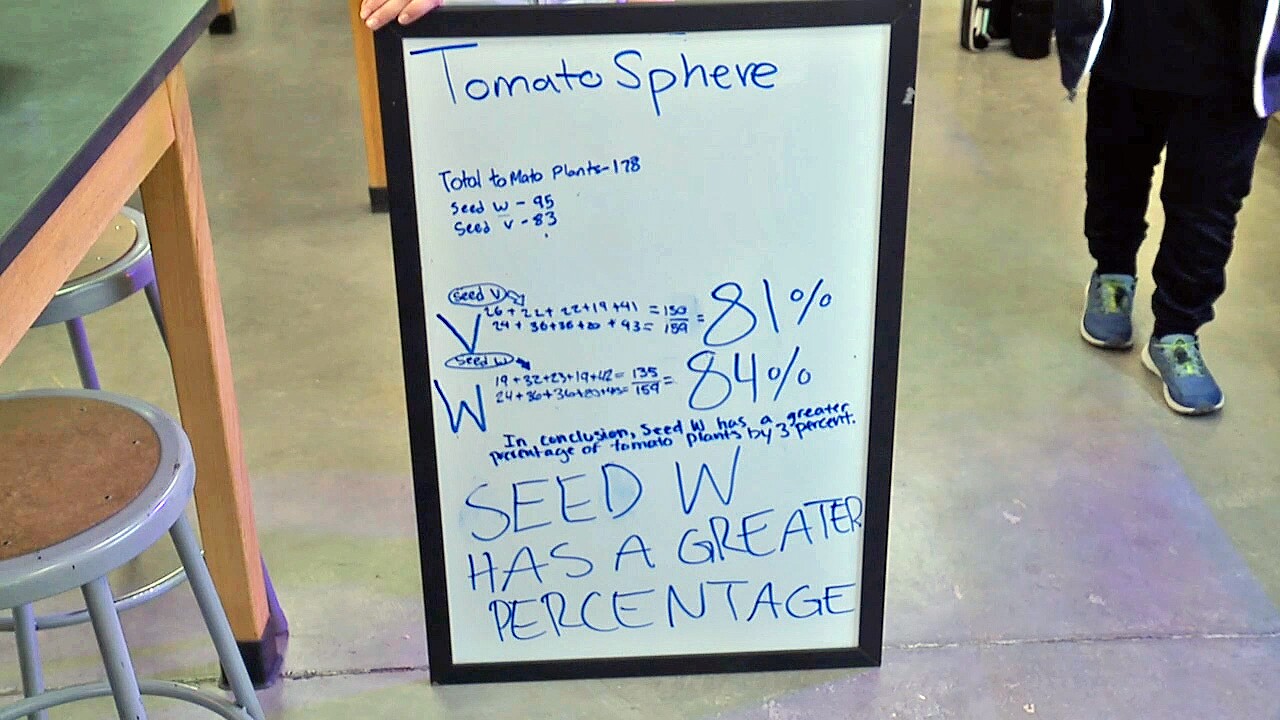 TomatoSphere
Total toMato Plants-178
Seed W - 95
Seed V - 83
Seed V
26 + 22 + 22+19+41 = 130
V 24 + 36+36+20 + 43 = 159 = 81%
Seed W
19+32+23+19+42= 135
W 24+36+36+20+43= 159 = 84%
In conclusion, Seed W has a greater
percentage of tomato plants by 3 percent.
SEED W
HAS A GREATER
PERCENTAGE